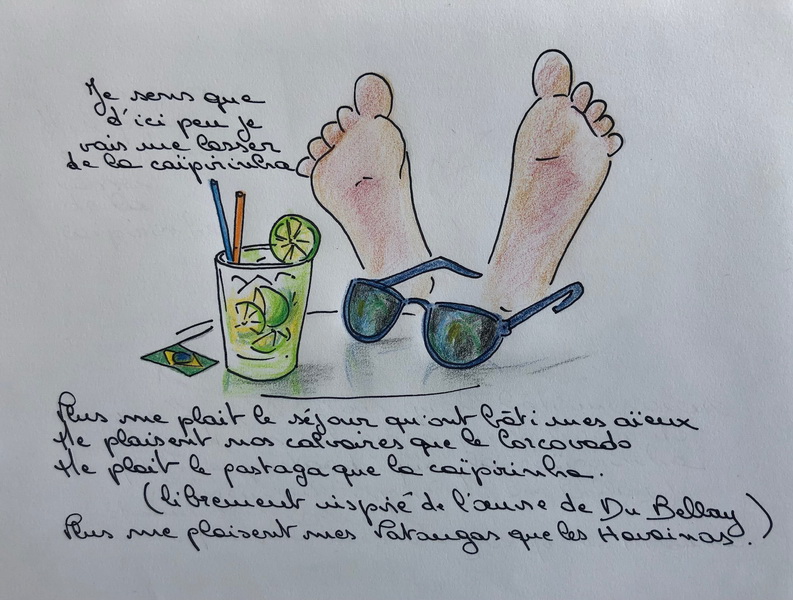 Je sens que
d'ici peu je
vais me lasser
de la caïpirinha
Plus me plait le séjour qu'ont bâti mes aïeux
Me plaisent nos calvaires que le Corcovado
Me plait le pastaga que la caïpirinha.
(librement inspiré de l'œuvre de Du Bellay)
Plus me plaisent mes Pataugas que les Havainas.